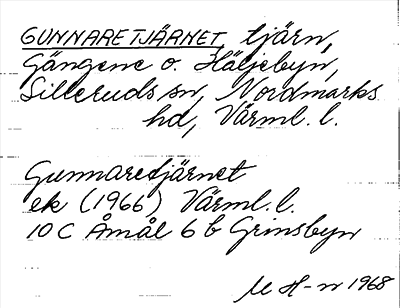 GUNNARETJÄRNET, tjärn,
Gängene o. Häljebyn,
Silleruds sn, Nordmarks
hd, Värml. l.
Gunnaretjärnet
ek (1966) Värml. l.
10 C Åmål 6 b Grinsbyn
M H-n 1968